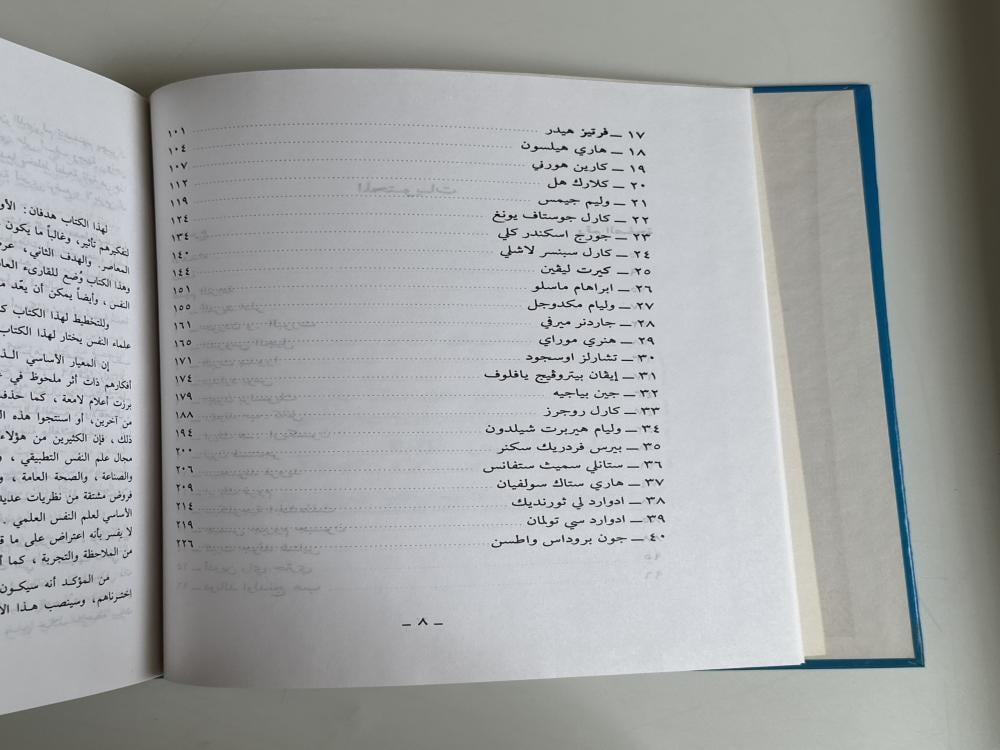 ١٧ ــ فرتيز هيدر ١٠١
١٨ ــ هاري هيلسون ١٠٤
١٩ ــ كارين هورني ١٠٧
٢٠ ــ كلارك هل ١١٢
٢١ ــ وليم جيمس ١١٩
٢٢ ــ كارل جوستاف يونغ ١٢٤
٢٣ ــ جورج اسكندر كلي ١٣٤
٢٤ ــ كارل سبنسر لاشلي ١٤٠
٢٥ ــ كيرت ليڤين ١٤٤
٢٦ ــ ابراهام ماسلو ١٥١
٢٧ ــ وليام مكدوجل ١٥٥
٢٨ ــ جاردنر ميرفي ١٦١
٢٩ ــ هنري موراي ١٦٥
٣٠ ــ تشارلز اوسجود ١٧١
٣١ ــ إيڤان بيتروڤيج يافلوف ١٧٤
٣٢ ــ جين بياجيه ١٧٩
٣٣ ــ كارل روجرز ١٨٨
٣٤ ــ وليام هيربرت شيلدون ١٩٤
٣٥ ــ بيرس فردريك سكنر ٢٠٠
٣٦ ــ ستانلي سميث ستفانس ٢٠٦
٣٧ ــ هاري ستاك سولفيان ٢٠٩
٣٨ ــ ادوارد لي ثورنديك ٢١٤
٣٩ ــ ادوارد سي تولمان ٢١٩
٤٠ ــ جون بروداس واطسن ٢٢٦
ــ ٨ ــ
لهذا الكتاب هدفان: الأو
لتفكيرهم تأثير، وغالباً ما يكون
المعاصر. والهدف الثاني، عر
وهذا الكتاب وُضع للقارىء العا
النفس، وأيضاً يمكن أن يعّد م
وللتخطيط لهذا الكتاب ك
علماء النفس يختار لهذا الكتاب
إن المعيار الأساسي الـذ
أفكارهم ذات أثر ملحوظ في
برزت أعلام لامعة، كما حذف
من آخرين، أو استنتجوا هذه ال
ذلك، فإن الكثيرين من هؤلاء
مجال علم النفس التطبيقي، و
والصناعة، والصحة العامة، و
فروض مشتقة من نظريات عديد
الأساسي لعلم النفس العلمي.
لا يفسر بأنه اعتراض على ما ق
من الملاحظة والتجربة، كما أ
من المؤكد أنه سيكون
إختـرناهم، وسينصب هـذا الا